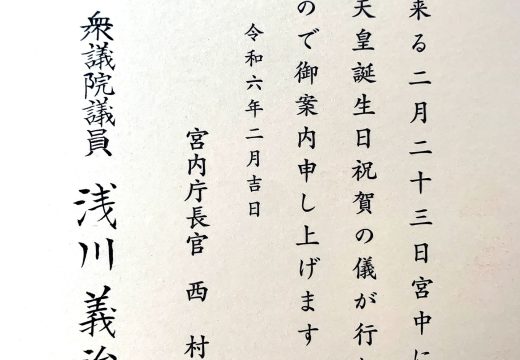 来る二月二十三日宮中に
天皇誕生日祝賀の儀が行
ので御案内申し上げます
令和六年二月吉日
宮内庁長官 西 村
衆議院議員 浅川 義治